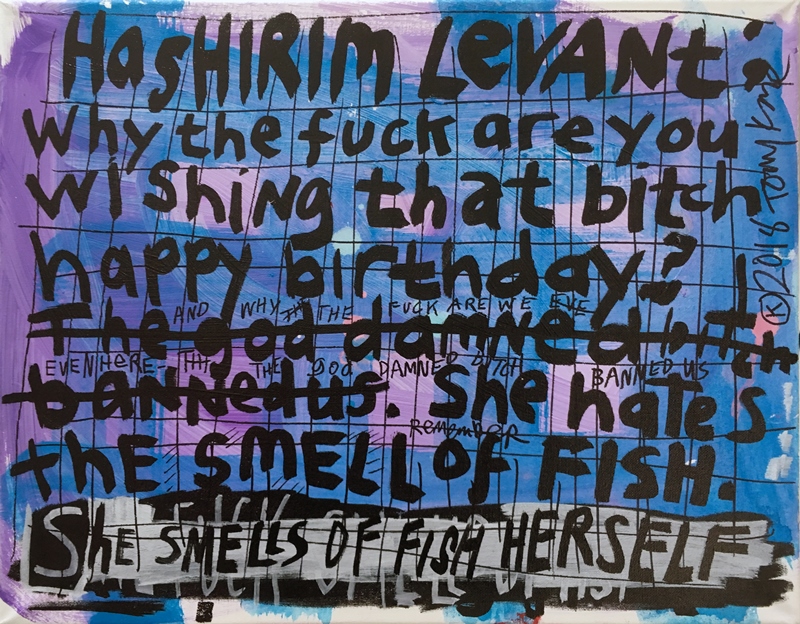 HasHIRIM LeVANt:
Why the fuck are you
WiShing that bitch
happy birthday?
AND WHY THE FUCK ARE WE EVE
The god damned bitch
EVEN HERE- THE GOD DAMNED BITCH BANNED US
banned us. She hates
Remember
thE SMELL of FISH.
ShE SMELLS OF FISH HERSELF
Ⓚ 2018 Tony Kaye